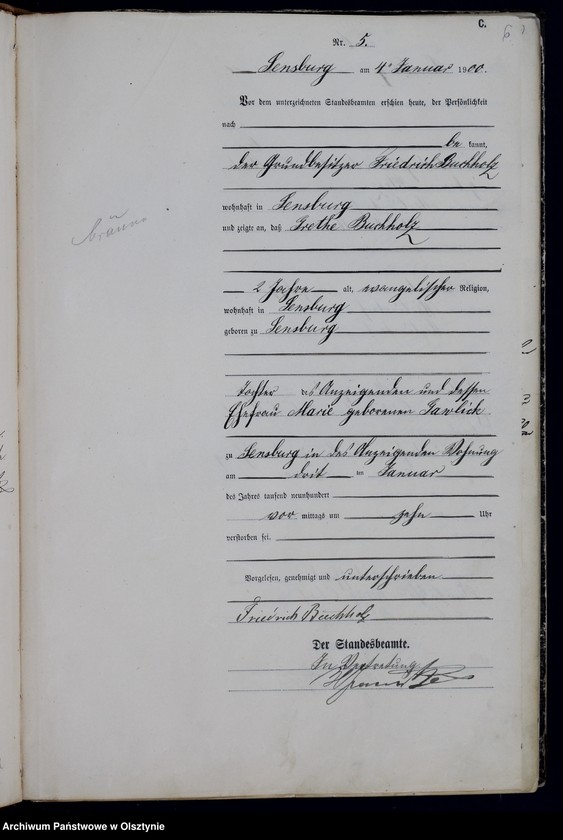 C.
Nr. 5.
Sensburg am 4ᵗ Januar 1900.
Vor dem unterzeichneten Standesbeamten erschien heute, der Persönlichkeit
nach
be kannt,
der Grundbesitzer Friedrich Buchholz
wohnhaft in Sensburg
und zeigte an, daß Grethe Buchholz
2 Jahre alt, evangelischer Religion,
wohnhaft in Sensburg
geboren zu Sensburg
Tochter des Anzeigenden und dessen
Ehefrau Marie geborenen Gawlick
zu Sensburg in des Anzeigenden Wohnung
am drit ten Januar
des Jahres tausend neunhundert
vor mittags um zehn Uhr
verstorben sei.
Vorgelesen, genehmigt und unterschrieben
Friedrich Buchholz
Der Standesbeamte.
In Vertretung
Bräune
Archiwum Państwowe w Olsztynie